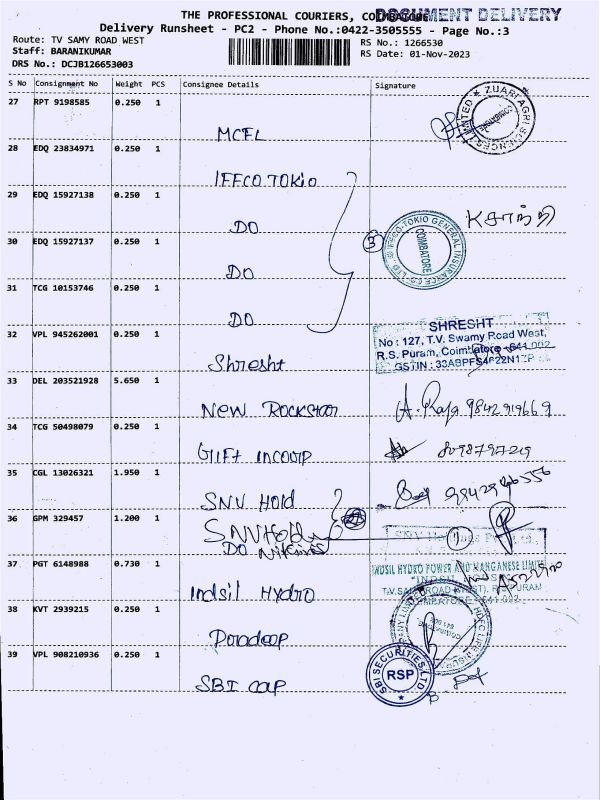 THE PROFESSIONAL COURIERS, COIMBATORE
DOCUMENT DELIVERY
Delivery Runsheet - PC2 - Phone No.:0422-3505555 - Page No.:3
Route: TV SAMY ROAD WEST
RS No.: 1266530
Staff: BARANIKUMAR
RS Date: 01-Nov-2023
DRS No.: DCJB126653003
S No Consignment No Weight PCS Consignee Details Signature
27 RPT 9198585 0.250 1
MCFL
ZUARI AGRI SCIENCES LIMITED
COIMBATORE
28 EDQ 23834971 0.250 1
IFFCO.TOKIO
29 EDQ 15927138 0.250 1
DO
5
IFFCO-TOKIO GENERAL INSURANCE CO. LTD.
COIMBATORE
30 EDQ 15927137 0.250 1
DO
31 TCG 10153746 0.250 1
DO
32 VPL 945262001 0.250 1
Shresht
SHRESHT
No : 127, T.V. Swamy Road West,
R.S. Puram, Coimbatore - 641 002
33 DEL 203521928 5.650 1
New Rockstar
A. Raja 9842919669
34 TCG 50498079 0.250 1
8098797219
35 CGL 13026321 1.950 1
SNV Hold
36 GPM 329457 1.200 1
SNV Hold
DO
37 PGT 6148988 0.730 1
Indsil Hydro
INDSIL HYDRO POWER AND MANGANESE LIMITED
"INDSIL
COIMBATORE - 641 002
38 KVT 2939215 0.250 1
39 VPL 908210936 0.250 1
SBI cap
SBI SECURITIES LTD
RSP